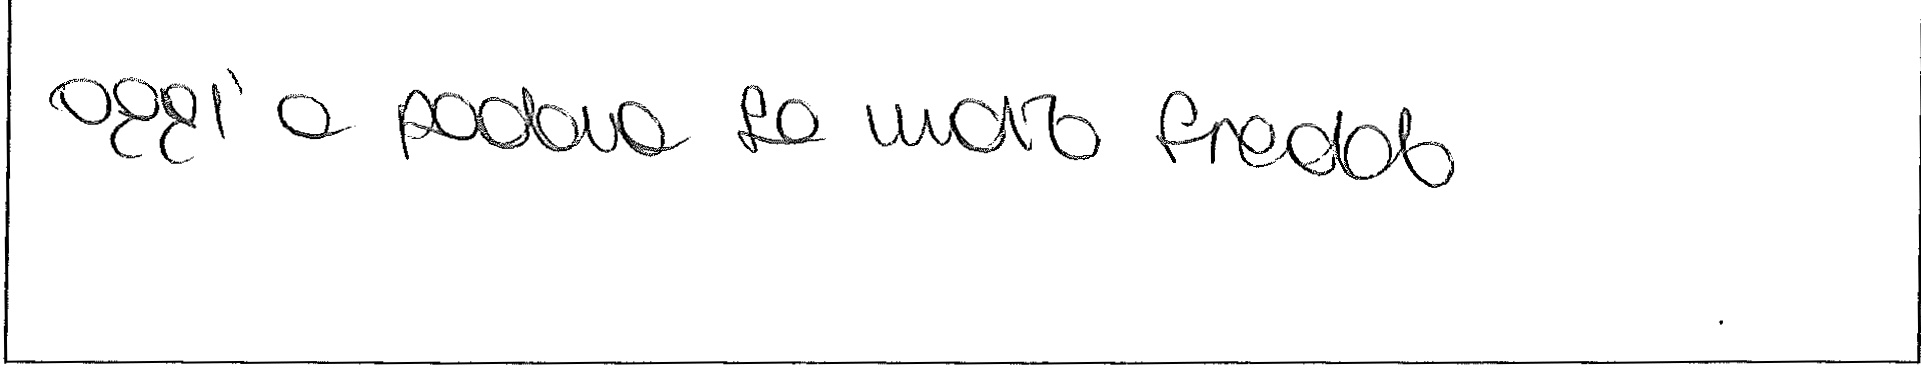 oggi a padova fa molto freddo